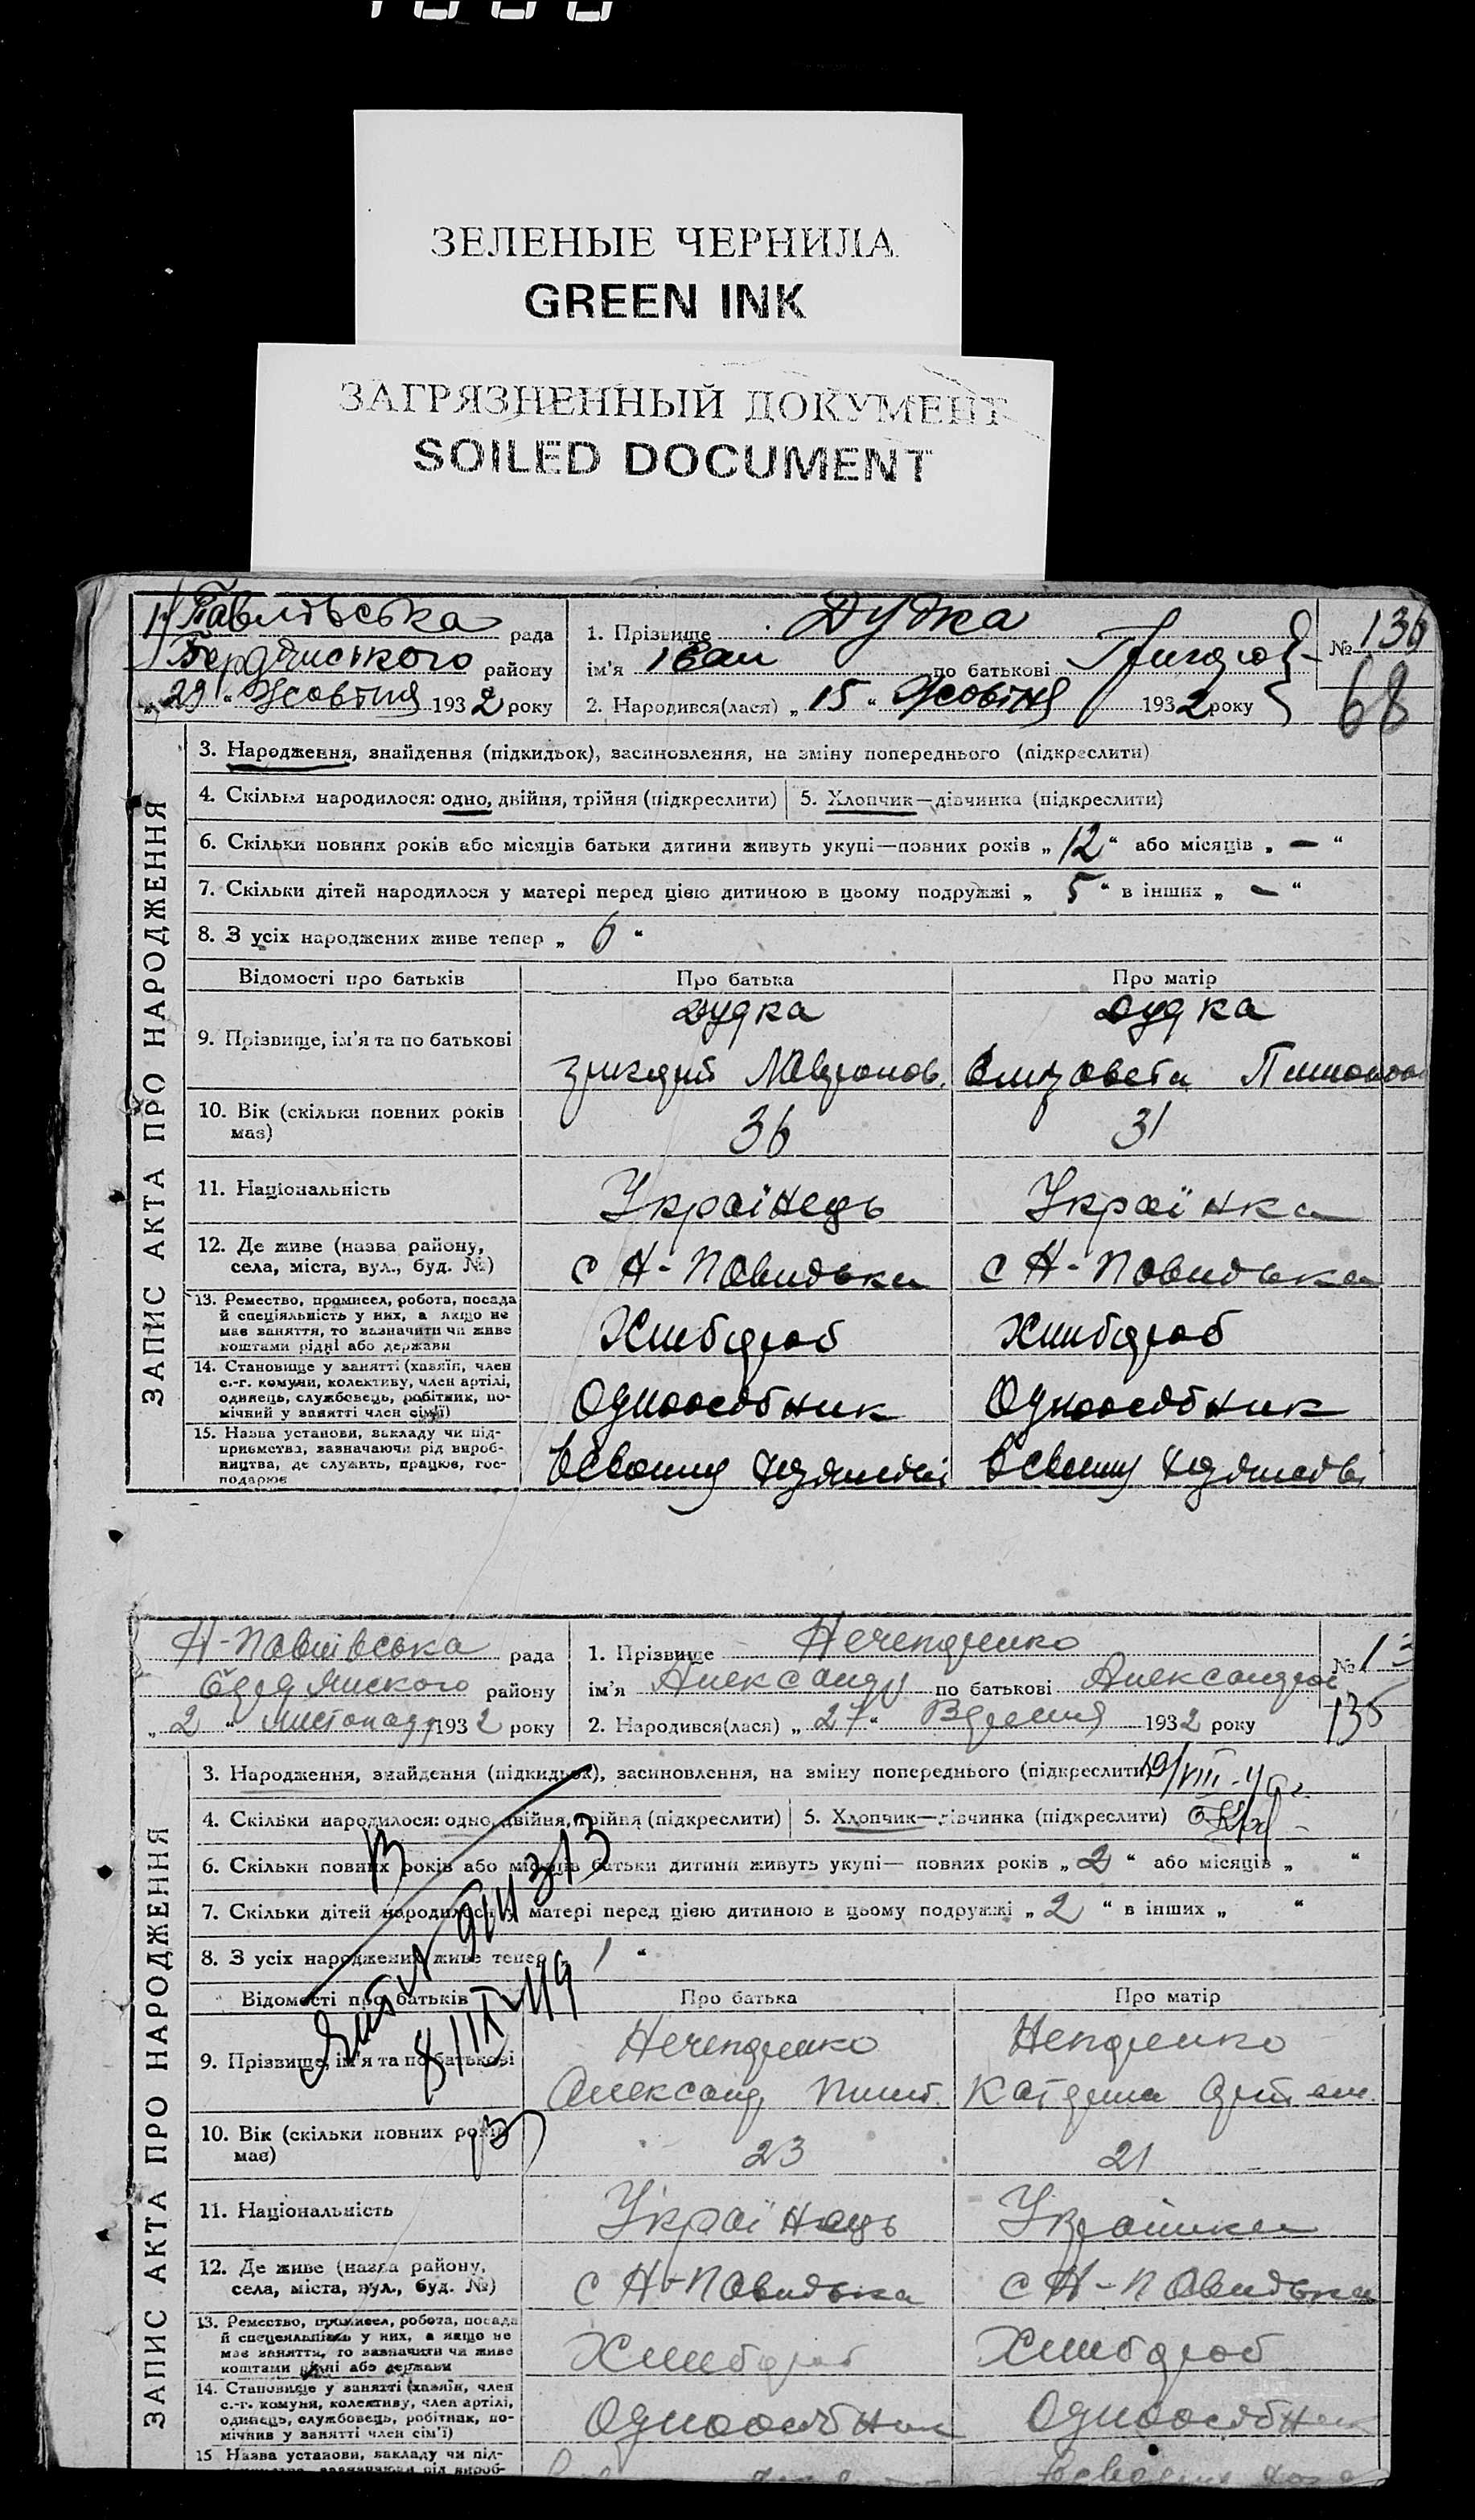 ЗЕЛЕНЫЕ ЧЕРНИЛА
GREEN INK
ЗАГРЯЗНЕННЫЙ ДОКУМЕНТ
SOILED DOCUMENT
Павлівська рада
Бердянського району
„29“ Жовтня 1932 року
1. Прізвище Дудка
ім'я Іван по батькові
2. Народився(лася) „15“ Жовтня 1932 року
№ 136
68
ЗАПИС АКТА ПРО НАРОДЖЕННЯ
3. Народження, знайдення (підкидьок), засиновлення, на зміну попереднього (підкреслити)
4. Скільки народилося: одно, двійня, трійня (підкреслити) 5. Хлопчик—дівчинка (підкреслити)
6. Скільки повних років або місяців батьки дитини живуть укупі—повних років „12“ або місяців „—“
7. Скільки дітей народилося у матері перед цією дитиною в цьому подружжі „5“ в інших „—“
8. З усіх народжених живе тепер „6“
Відомості про батьків Про батька Про матір
9. Прізвище, ім'я та по батькові
Дудка Дудка
Елизовета
10. Вік (скільки повних років має) 36 31
11. Національність Українець Українка
12. Де живе (назва району, села, міста, вул., буд. №)
с Н-Павлівка с Н-Павлівка
13. Ремество, промисел, робота, посада
й спеціяльність у них, а якщо не
має заняття, то зазначити чи живе
коштами рідні або держави
Хлібороб Хлібороб
14. Становище у занятті (хазяїн, член
с.-г. комуни, колективу, член артілі,
одинець, службовець, робітник, по-
мічний у занятті член сім'ї)
Одноосібник Одноосібник
15. Назва установи, закладу чи під-
приємства, зазначаючи рід вироб-
ництва, де служить, працює, гос-
подарює
Н-Павлівська рада
району
„2“ листопада 1932 року
1. Прізвище
ім'я Александр по батькові
2. Народився(лася) „27“ Вересня 1932 року
№ 13
ЗАПИС АКТА ПРО НАРОДЖЕННЯ
3. Народження, знайдення (підкидьок), засиновлення, на зміну попереднього (підкреслити)
4. Скільки народилося: одно, двійня, трійня (підкреслити) 5. Хлопчик—дівчинка (підкреслити)
6. Скільки повних років або місяців батьки дитини живуть укупі— повних років „2“ або місяців „ “
7. Скільки дітей народилося у матері перед цією дитиною в цьому подружжі „2“ в інших „ “
8. З усіх народжених живе тепер „1“
Відомості про батьків Про батька Про матір
9. Прізвище, ім'я та по батькові
10. Вік (скільки повних років має) 23 21
11. Національність Українець Українка
12. Де живе (назва району, села, міста, вул., буд. №)
с Н-Павлівка с Н-Павлівка
13. Ремество, промисел, робота, посада
й спеціяльність у них, а якщо не
має заняття, то зазначити чи живе
коштами рідні або держави
Хлібороб Хлібороб
14. Становище у занятті (хазяїн, член
с.-г. комуни, колективу, член артілі,
одинець, службовець, робітник, по-
мічнив у занятті член сім'ї)
Одноосібник Одноосібник
15 Назва установи, закладу чи під-